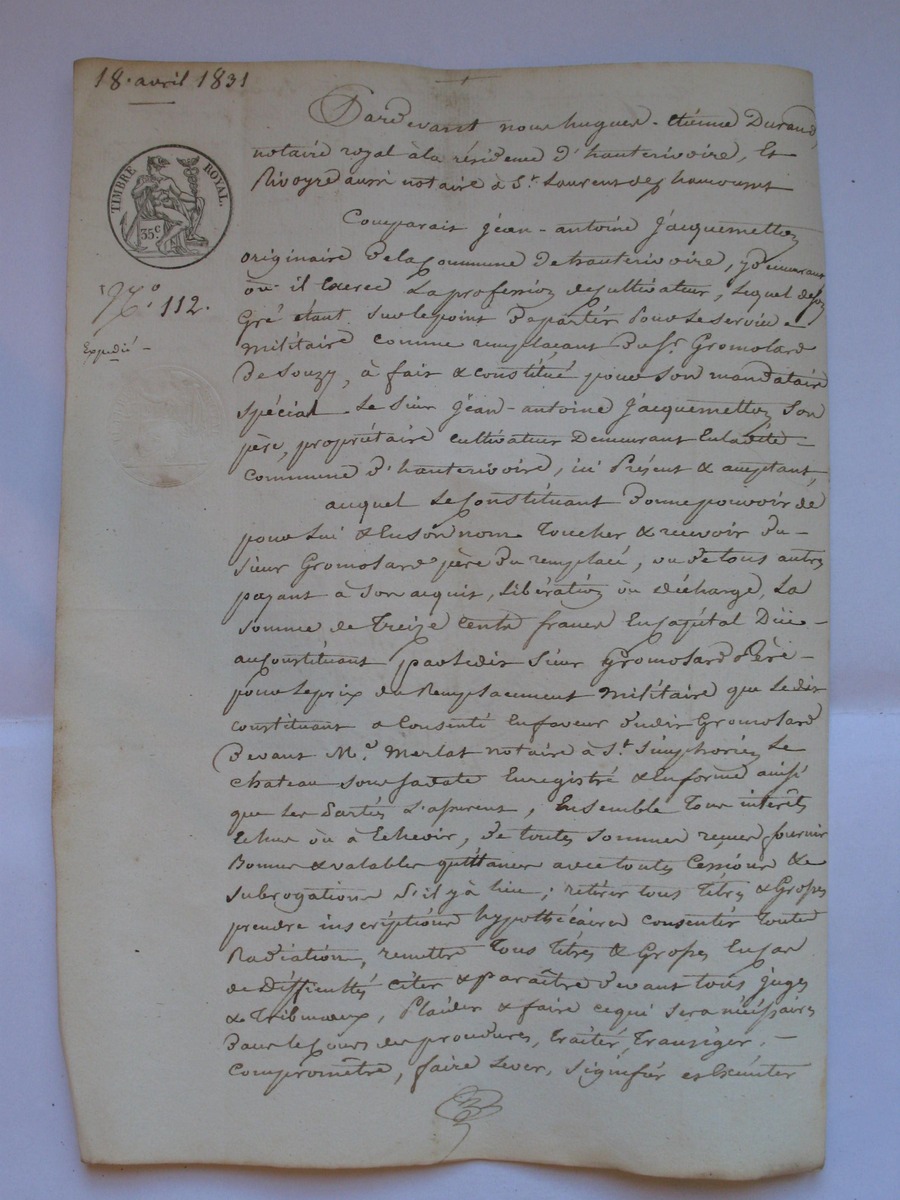 18. avril 1831
TIMBRE ROYAL.
35c
No. 112.
Expedié
Pardevant nous hugues-etiénne Durand,
notaire royal à la résidence d'hauterivoire, Et
Rivoyre aussi notaire à St. Laurent de Chamousset
Comparait jéan-antoine Jacquemetton
originaire de la Commune de hauterivoire, y demeurant
ou il Exerce La profession de cultivateur, Lequel de son
Gré étant sur le point de partir pour le service
militaire comme remplaçant du Sr. Gromolard
De Souzy, à fait & constitué pour son mandataire
spécial Le sieur jéan-antoine Jacquemetton son
père, propriétaire cultivateur Demeurant En la dite
Commune d'hauterivoire, ici Présent & acceptant,
auquel Le Constituant Donne pouvoir de
pour Lui & En son nom Toucher & recevoir du
sieur Gromolard père du remplacé, ou de tous autres
payant à son acquit, Libération ou décharge, La
somme de Treize Cents francs En Capital Due
au Constituant par ledit sieur Gromolard Père
pour Le prix du Remplacement militaire que Ledit
constituant a Consenti En faveur dudit Gromolard
Devant Me. Merlat notaire à St. Simphorien Le
chateau sous sa date Enregistré & En forme ainsi
que Les Parties L'assurent, Ensemble Tous intérêts
Echus ou à Echeoir, de toutes sommes reçues fournir
Bonnes & valables quittances avec toutes Cessions &
subrogations S'il y à lieu; retirer tous Titres & Grosses
prendre inscriptions hypothécaires consentir Toutes
Radiation, remettre Tous Titres & Grosses En cas
de Difficultés citer & paraître devant tous juges
& Tribunaux, Plaider & faire ce qui sera nécéssaire
Dans Le Cours des procédures, traiter, Transiger,
Comprométre, faire Lever, signifier et Exécuter